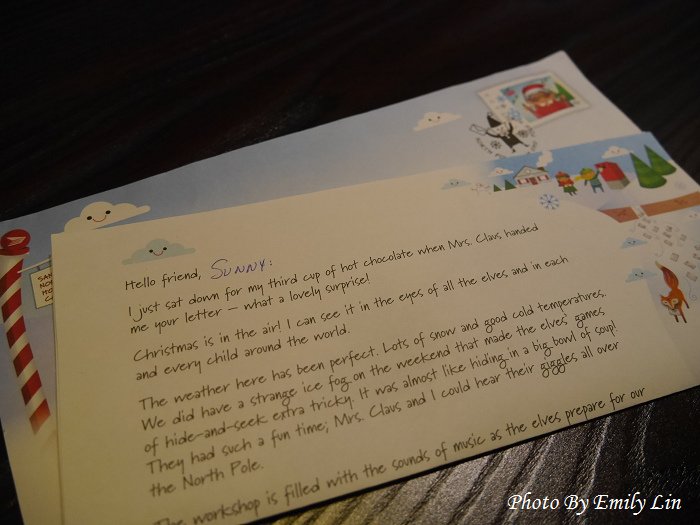 SAN
NO
HO
C
Hello friend, Sunny:
I just sat down for my third cup of hot chocolate when Mrs. Claus handed
me your letter – what a lovely surprise!
Christmas is in the air! I can see it in the eyes of all the elves and in each
and every child around the world.
The weather here has been perfect. Lots of snow and good cold temperatures.
We did have a strange ice fog on the weekend that made the elves' games
of hide-and-seek extra tricky. It was almost like hiding in a big bowl of soup!
They had such a fun time; Mrs. Claus and I could hear their giggles all over
the North Pole.
The workshop is filled with the sounds of music as the elves prepare for our
Photo By Emily Lin